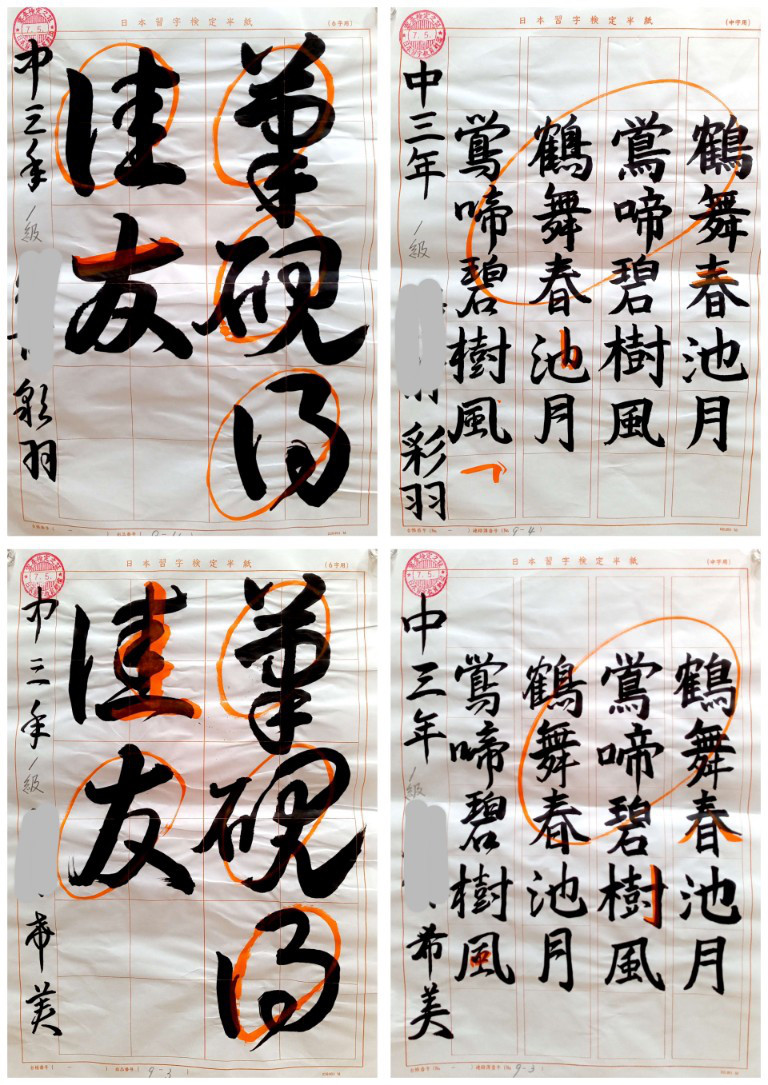 日本習字検定半紙
筆硯得
佳友
中三年 1級 彩羽
7.5.
日本習字検定半紙
鶴舞春池月
鶯啼碧樹風
鶴舞春池月
鶯啼碧樹風
中三年 1級 彩羽
7.5.
9-4
日本習字検定半紙
筆硯得
佳友
中三年 1級 希美
7.5.
9-3
日本習字検定半紙
鶴舞春池月
鶯啼碧樹風
鶴舞春池月
鶯啼碧樹風
中三年 1級 希美
7.5.
9-3